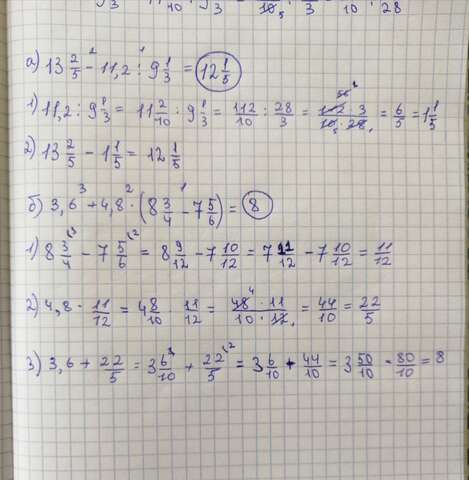 а) 13 2/5 - 11,2 : 9 1/3 = 12 1/5
1) 11,2 : 9 1/3 = 11 2/10 : 9 1/3 = 112/10 : 28/3 = 112 · 3 / 10 · 28 = 6/5 = 1 1/5
2) 13 2/5 - 1 1/5 = 12 1/5
б) 3,6 + 4,8 · (8 3/4 - 7 5/6) = 8
1) 8 3/4 - 7 5/6 = 8 9/12 - 7 10/12 = 7 21/12 - 7 10/12 = 11/12
2) 4,8 · 11/12 = 48/10 · 11/12 = 48 · 11 / 10 · 12 = 44/10 = 22/5
3) 3,6 + 22/5 = 3 6/10 + 22/5 = 3 6/10 + 44/10 = 3 50/10 = 80/10 = 8